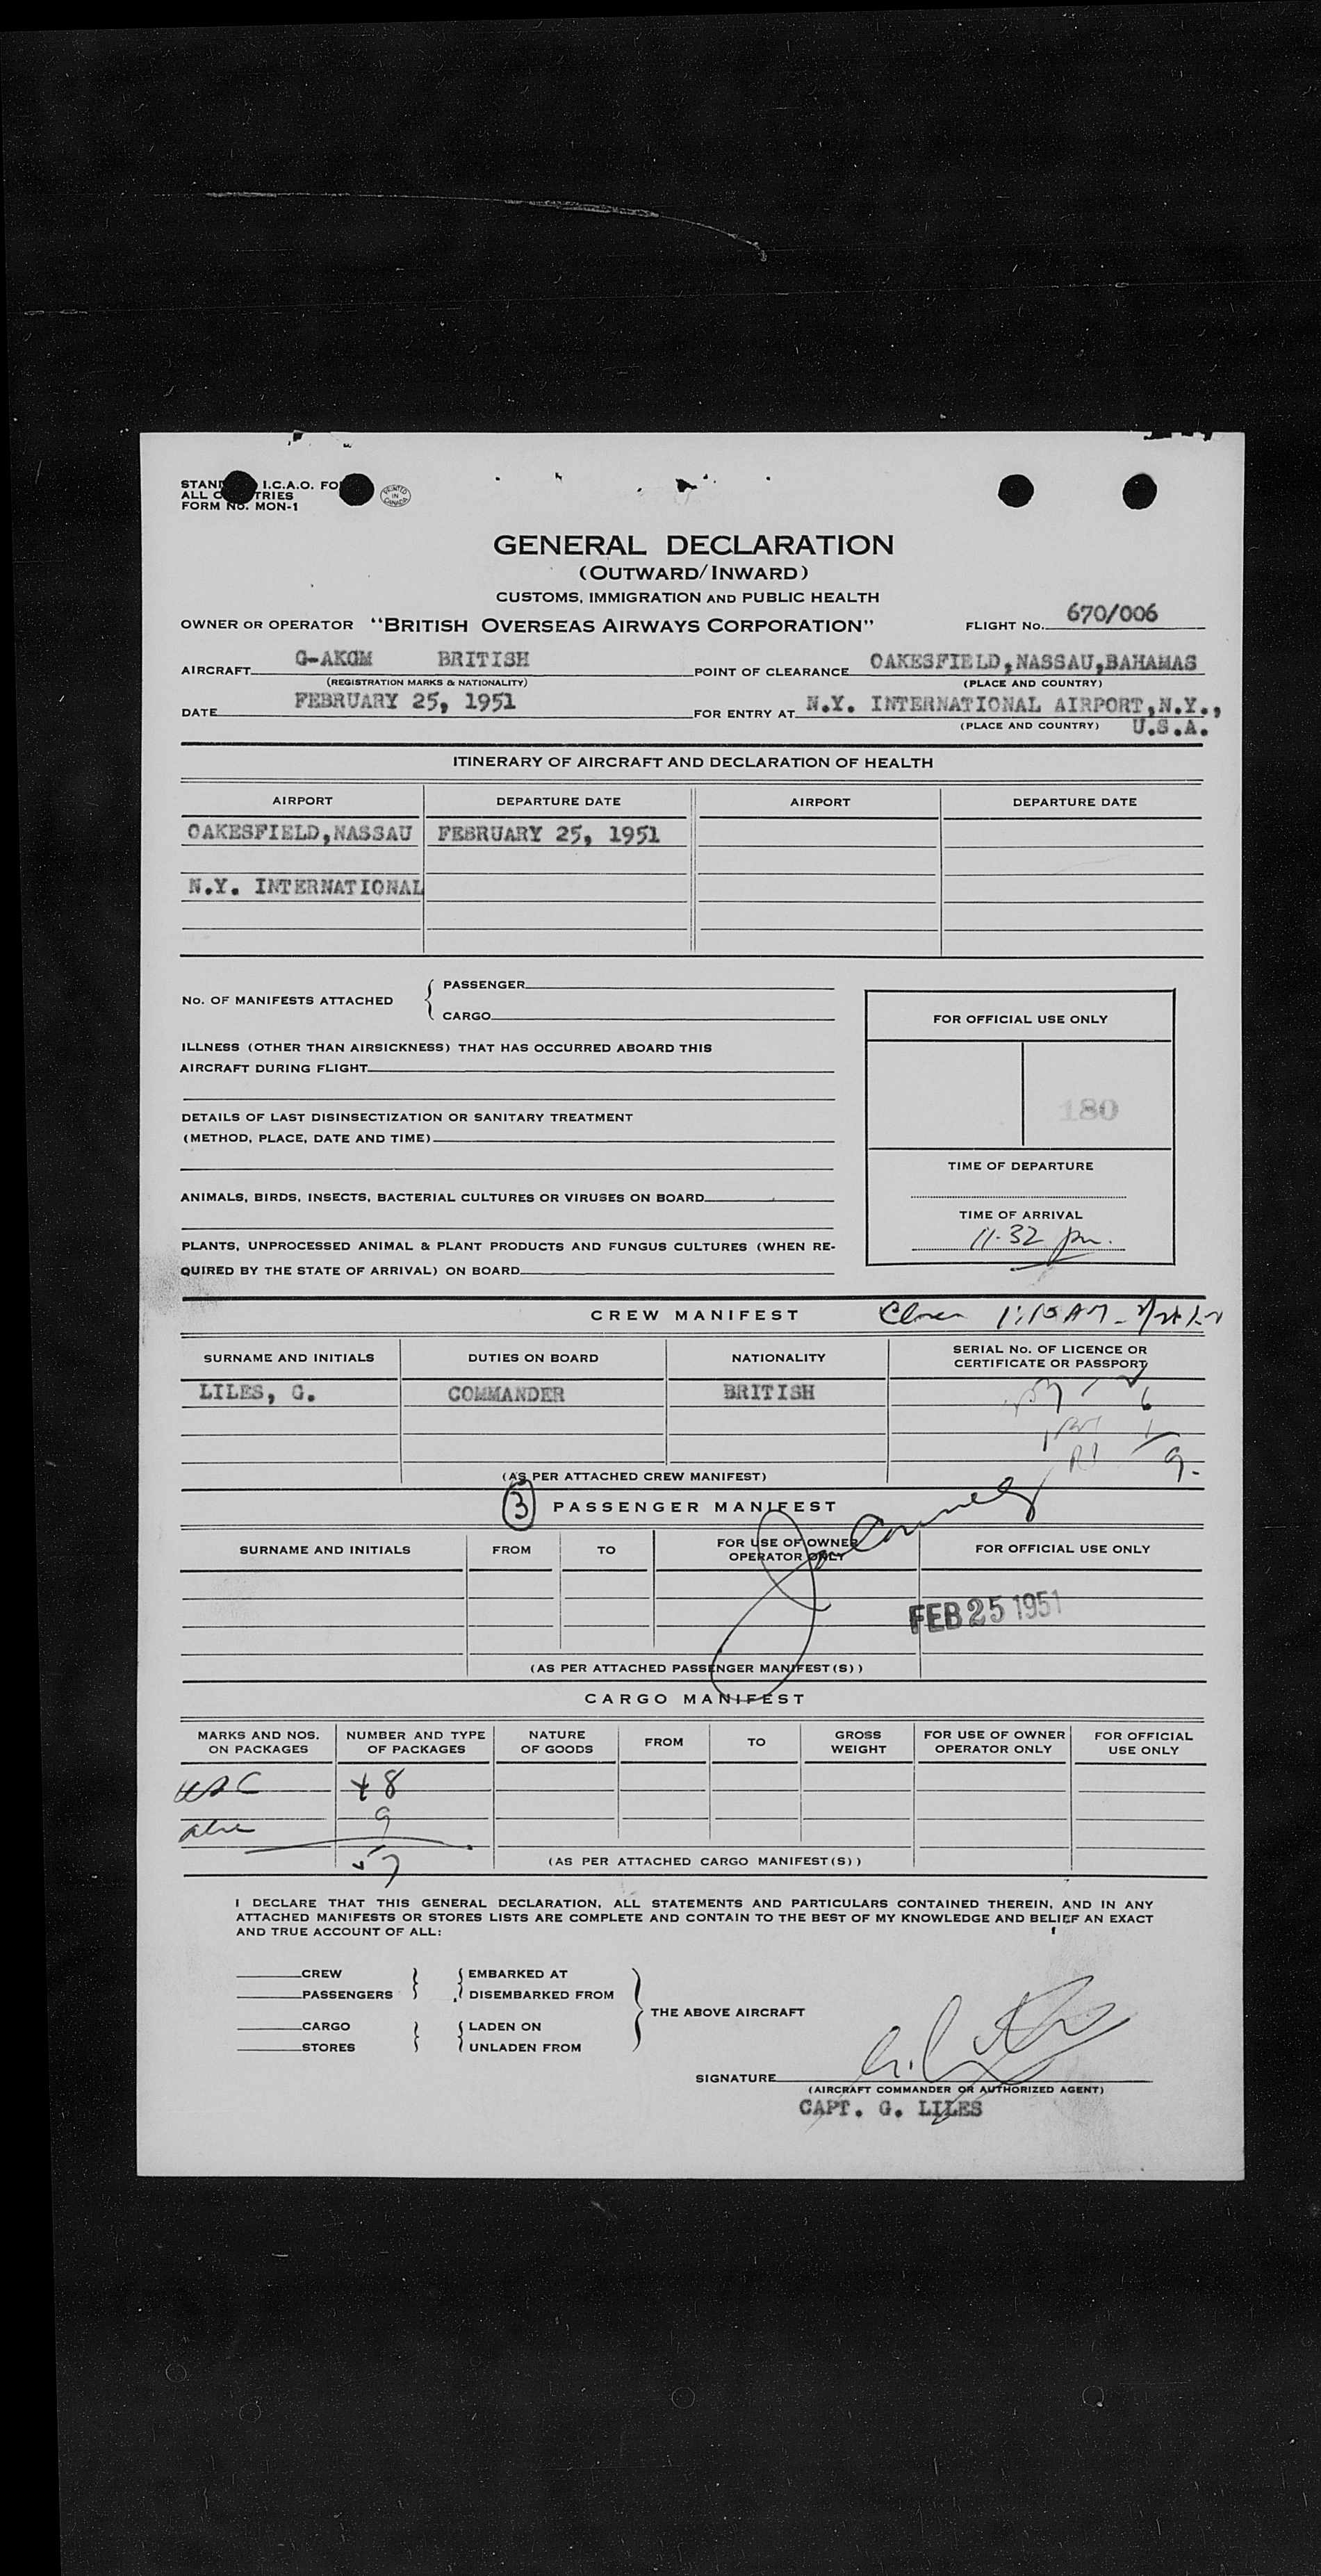 STAND I.C.A.O. FO
ALL C TRIES
FORM No. MON-1
PRINTED IN CANADA
GENERAL DECLARATION
(OUTWARD/INWARD)
CUSTOMS, IMMIGRATION AND PUBLIC HEALTH
OWNER OR OPERATOR "BRITISH OVERSEAS AIRWAYS CORPORATION" FLIGHT No. 670/006
AIRCRAFT G-AKGM BRITISH POINT OF CLEARANCE OAKESFIELD,NASSAU,BAHAMAS
(REGISTRATION MARKS & NATIONALITY) (PLACE AND COUNTRY)
DATE FEBRUARY 25, 1951 FOR ENTRY AT N.Y. INTERNATIONAL AIRPORT,N.Y.,
(PLACE AND COUNTRY) U.S.A.
ITINERARY OF AIRCRAFT AND DECLARATION OF HEALTH
AIRPORT DEPARTURE DATE AIRPORT DEPARTURE DATE
OAKESFIELD,NASSAU FEBRUARY 25, 1951
N.Y. INTERNATIONAL
No. OF MANIFESTS ATTACHED { PASSENGER
CARGO
ILLNESS (OTHER THAN AIRSICKNESS) THAT HAS OCCURRED ABOARD THIS
AIRCRAFT DURING FLIGHT
DETAILS OF LAST DISINSECTIZATION OR SANITARY TREATMENT
(METHOD, PLACE, DATE AND TIME)
ANIMALS, BIRDS, INSECTS, BACTERIAL CULTURES OR VIRUSES ON BOARD
PLANTS, UNPROCESSED ANIMAL & PLANT PRODUCTS AND FUNGUS CULTURES (WHEN RE-
QUIRED BY THE STATE OF ARRIVAL) ON BOARD
FOR OFFICIAL USE ONLY
180
TIME OF DEPARTURE
TIME OF ARRIVAL
11.32 pm.
CREW MANIFEST 1:15 AM
SURNAME AND INITIALS DUTIES ON BOARD NATIONALITY SERIAL No. OF LICENCE OR
CERTIFICATE OR PASSPORT
LILES, G. COMMANDER BRITISH
6
1
9.
(AS PER ATTACHED CREW MANIFEST)
3 PASSENGER MANIFEST
SURNAME AND INITIALS FROM TO FOR USE OF OWNER
OPERATOR ONLY FOR OFFICIAL USE ONLY
FEB 25 1951
(AS PER ATTACHED PASSENGER MANIFEST(S))
CARGO MANIFEST
MARKS AND NOS.
ON PACKAGES NUMBER AND TYPE
OF PACKAGES NATURE
OF GOODS FROM TO GROSS
WEIGHT FOR USE OF OWNER
OPERATOR ONLY FOR OFFICIAL
USE ONLY
8
9
57
(AS PER ATTACHED CARGO MANIFEST(S))
I DECLARE THAT THIS GENERAL DECLARATION, ALL STATEMENTS AND PARTICULARS CONTAINED THEREIN, AND IN ANY
ATTACHED MANIFESTS OR STORES LISTS ARE COMPLETE AND CONTAIN TO THE BEST OF MY KNOWLEDGE AND BELIEF AN EXACT
AND TRUE ACCOUNT OF ALL:
CREW } { EMBARKED AT
PASSENGERS DISEMBARKED FROM
THE ABOVE AIRCRAFT
CARGO } { LADEN ON
STORES UNLADEN FROM
SIGNATURE
(AIRCRAFT COMMANDER OR AUTHORIZED AGENT)
CAPT. G. LILES